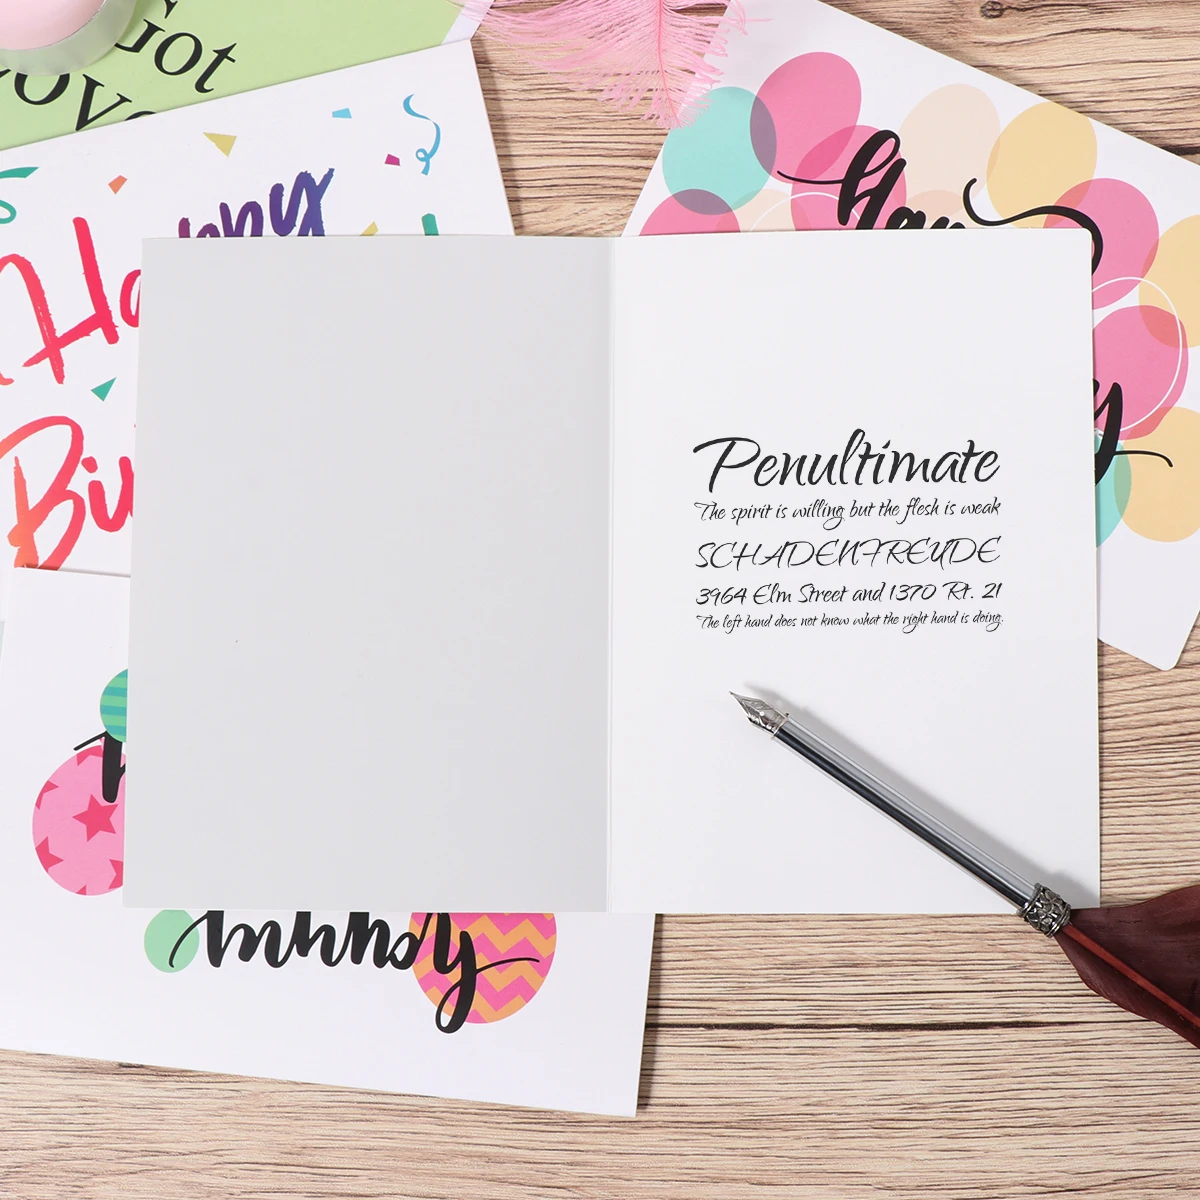 Got
Happy
Penultimate
The spirit is willing but the flesh is weak
SCHADENFREUDE
3964 Elm Street and 1370 Rt. 21
The left hand does not know what the right hand is doing.